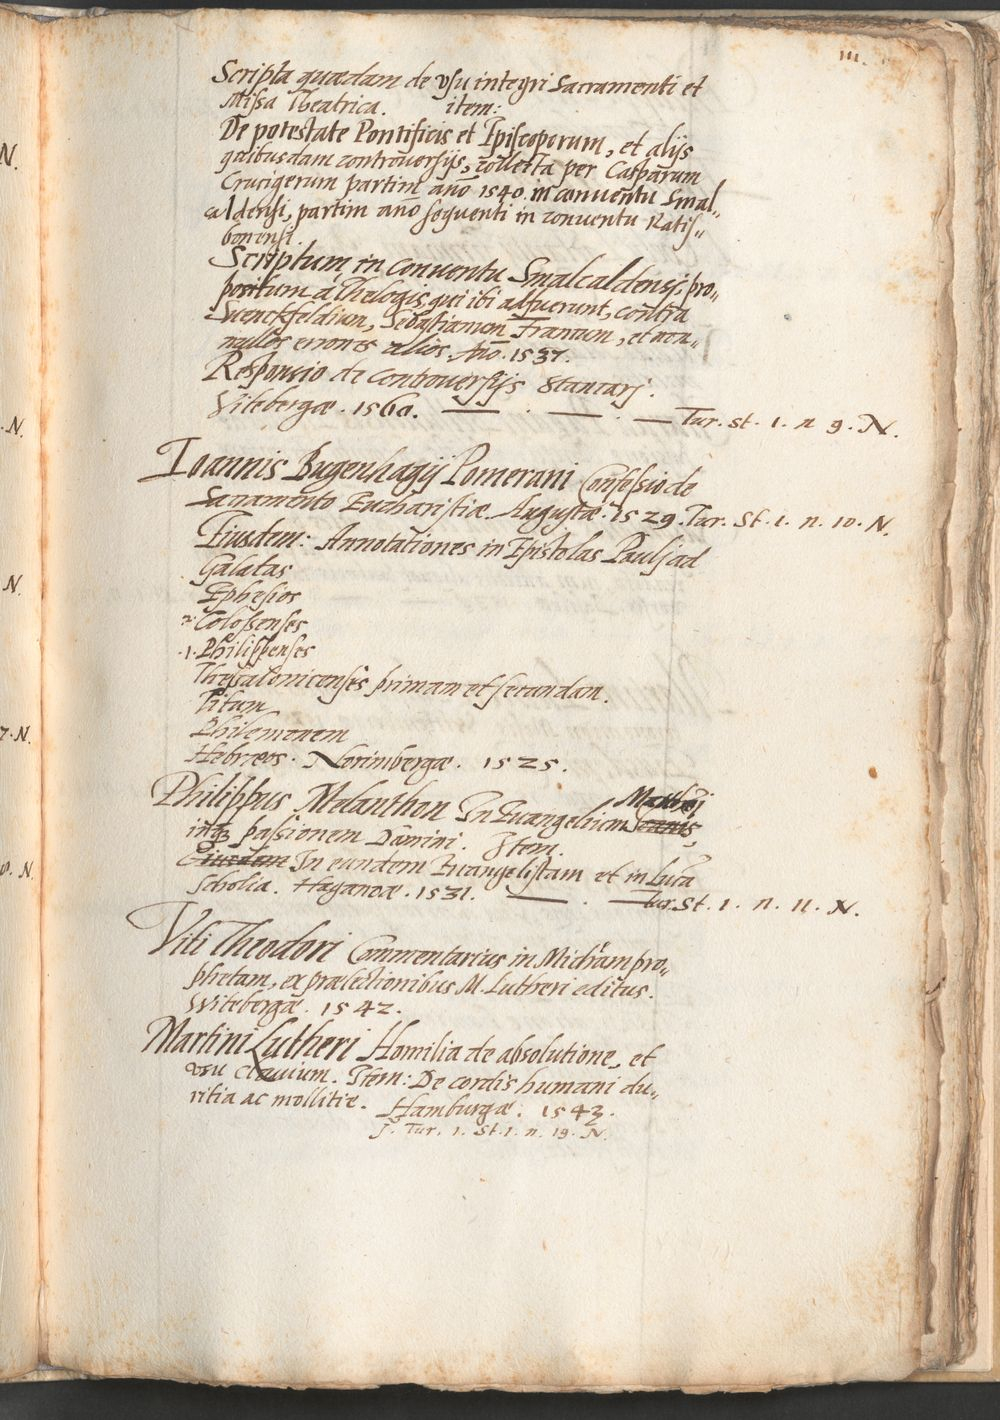 III.
Scripta quædam de vsu integri Sacramenti et
Missa Theatrica. item:
De potestate Pontificis et Episcoporum, et alijs
quibusdam controuersijs, collecta per Casparum
Crucigerum partim año 1540. in conuentu Smal„
caldensi, partim año sequenti in conuentu Ratis„
bonensi.
Scriptum in conuentu Smalcaldensi pro„
positum à Thelogis, qui ibi adfuerunt, contra
Suenckfeldium, Sebastianum Francum, et non„
nullos errones alios. Año. 1537.
Responsio de controuersijs Stancarj.
Vitebergæ. 1560. — . — . — Tur. St. 1. n 9. N.
Ioannis Bugenhagij Pomerani Confessio de
Sacramento Eucharistiæ. Augustæ. 1529. Tur. St. 1. n. 10. N.
Eiusdem: Annotationes in Epistolas Paulj ad
Galatas
Ephesios
2. Colossenses
.1. Philippenses
Thessalonicenses primam et secundam.
Titum
Philemonem
Hebræos. Norimbergæ. 1525.
Philippus Melanthon In Euangelium Ioanis Matthæj
inqꝫ passionem Domini. Item.
Eiusdem In eundem Euangelistam et in Luca
Scholia. Haganoæ. 1531. — . — Tur. St. 1. n. 11. N.
Viti Theodori Commentarius in Micham pro„
phetam, ex prælectionibus M. Lutheri editus.
Witebergæ. 1542.
Martini Lutheri Homilia de absolutione, et
vsu clauium. Item: De cordis humani du„
ritia ac mollitie. Hamburgæ. 1543.
J. Tur. 1. St. 1. n. 19. N.